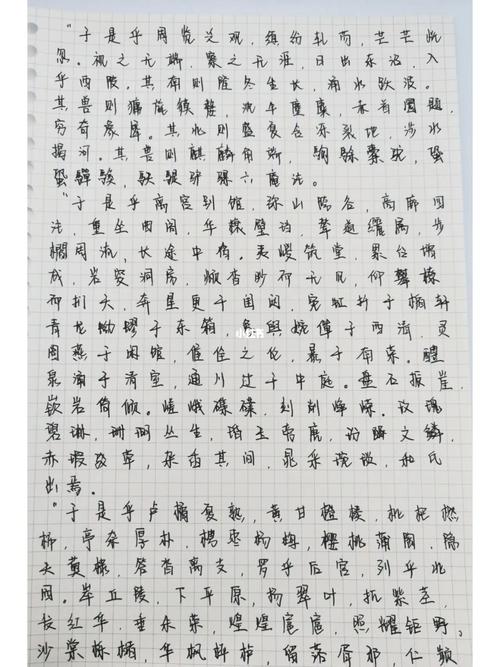 “于是乎周览泛观，缤纷轧芴，芒芒恍
忽。视之无端，察之无涯，日出东沼，入
乎西陂。其南则隆冬生长，涌水跃波。
其兽则㺎旄貘犛，沈牛麈麋，赤首圜题，
穷奇象犀。其北则盛夏含冻裂地，涉冰
揭河。其兽则麒麟角端，騊駼橐驼，蛩
蛩驒騱，駃騠驴骡。
“于是乎离宫别馆，弥山跨谷，高廊四
注，重坐曲阁，华榱璧珰，辇道纚属，步
櫩周流，长途中宿。夷嵕筑堂，累台增
成，岩窔洞房，頫杳眇而无见，仰攀橑
而扪天，奔星更于闺闼，宛虹扦于楯轩，
青龙蚴蟉于东箱，象舆婉僤于西清，灵
圄燕于闲馆，偓佺之伦，暴于南荣。醴
泉涌于清室，通川过于中庭。盘石振崖，
嵚岩倚倾。嵯峨磼碟，刻削峥嵘。玫瑰
碧琳，珊瑚丛生，珉玉旁唐，玢豳文鳞，
赤瑕驳荦，杂臿其间，晁采琬琰，和氏
出焉。
“于是乎卢橘夏熟，黄甘橙楱，枇杷橪
柿，亭柰厚朴，梬枣杨梅，樱桃蒲陶，隐
夫薁棣，答沓离支，罗乎后宫，列乎北
园。崒丘陵，下平原，扬翠叶，扤紫茎，
发红华，垂朱荣，煌煌扈扈，照曜钜野。
沙棠栎槠，华枫枰栌，留落胥邪，仁频
小红书